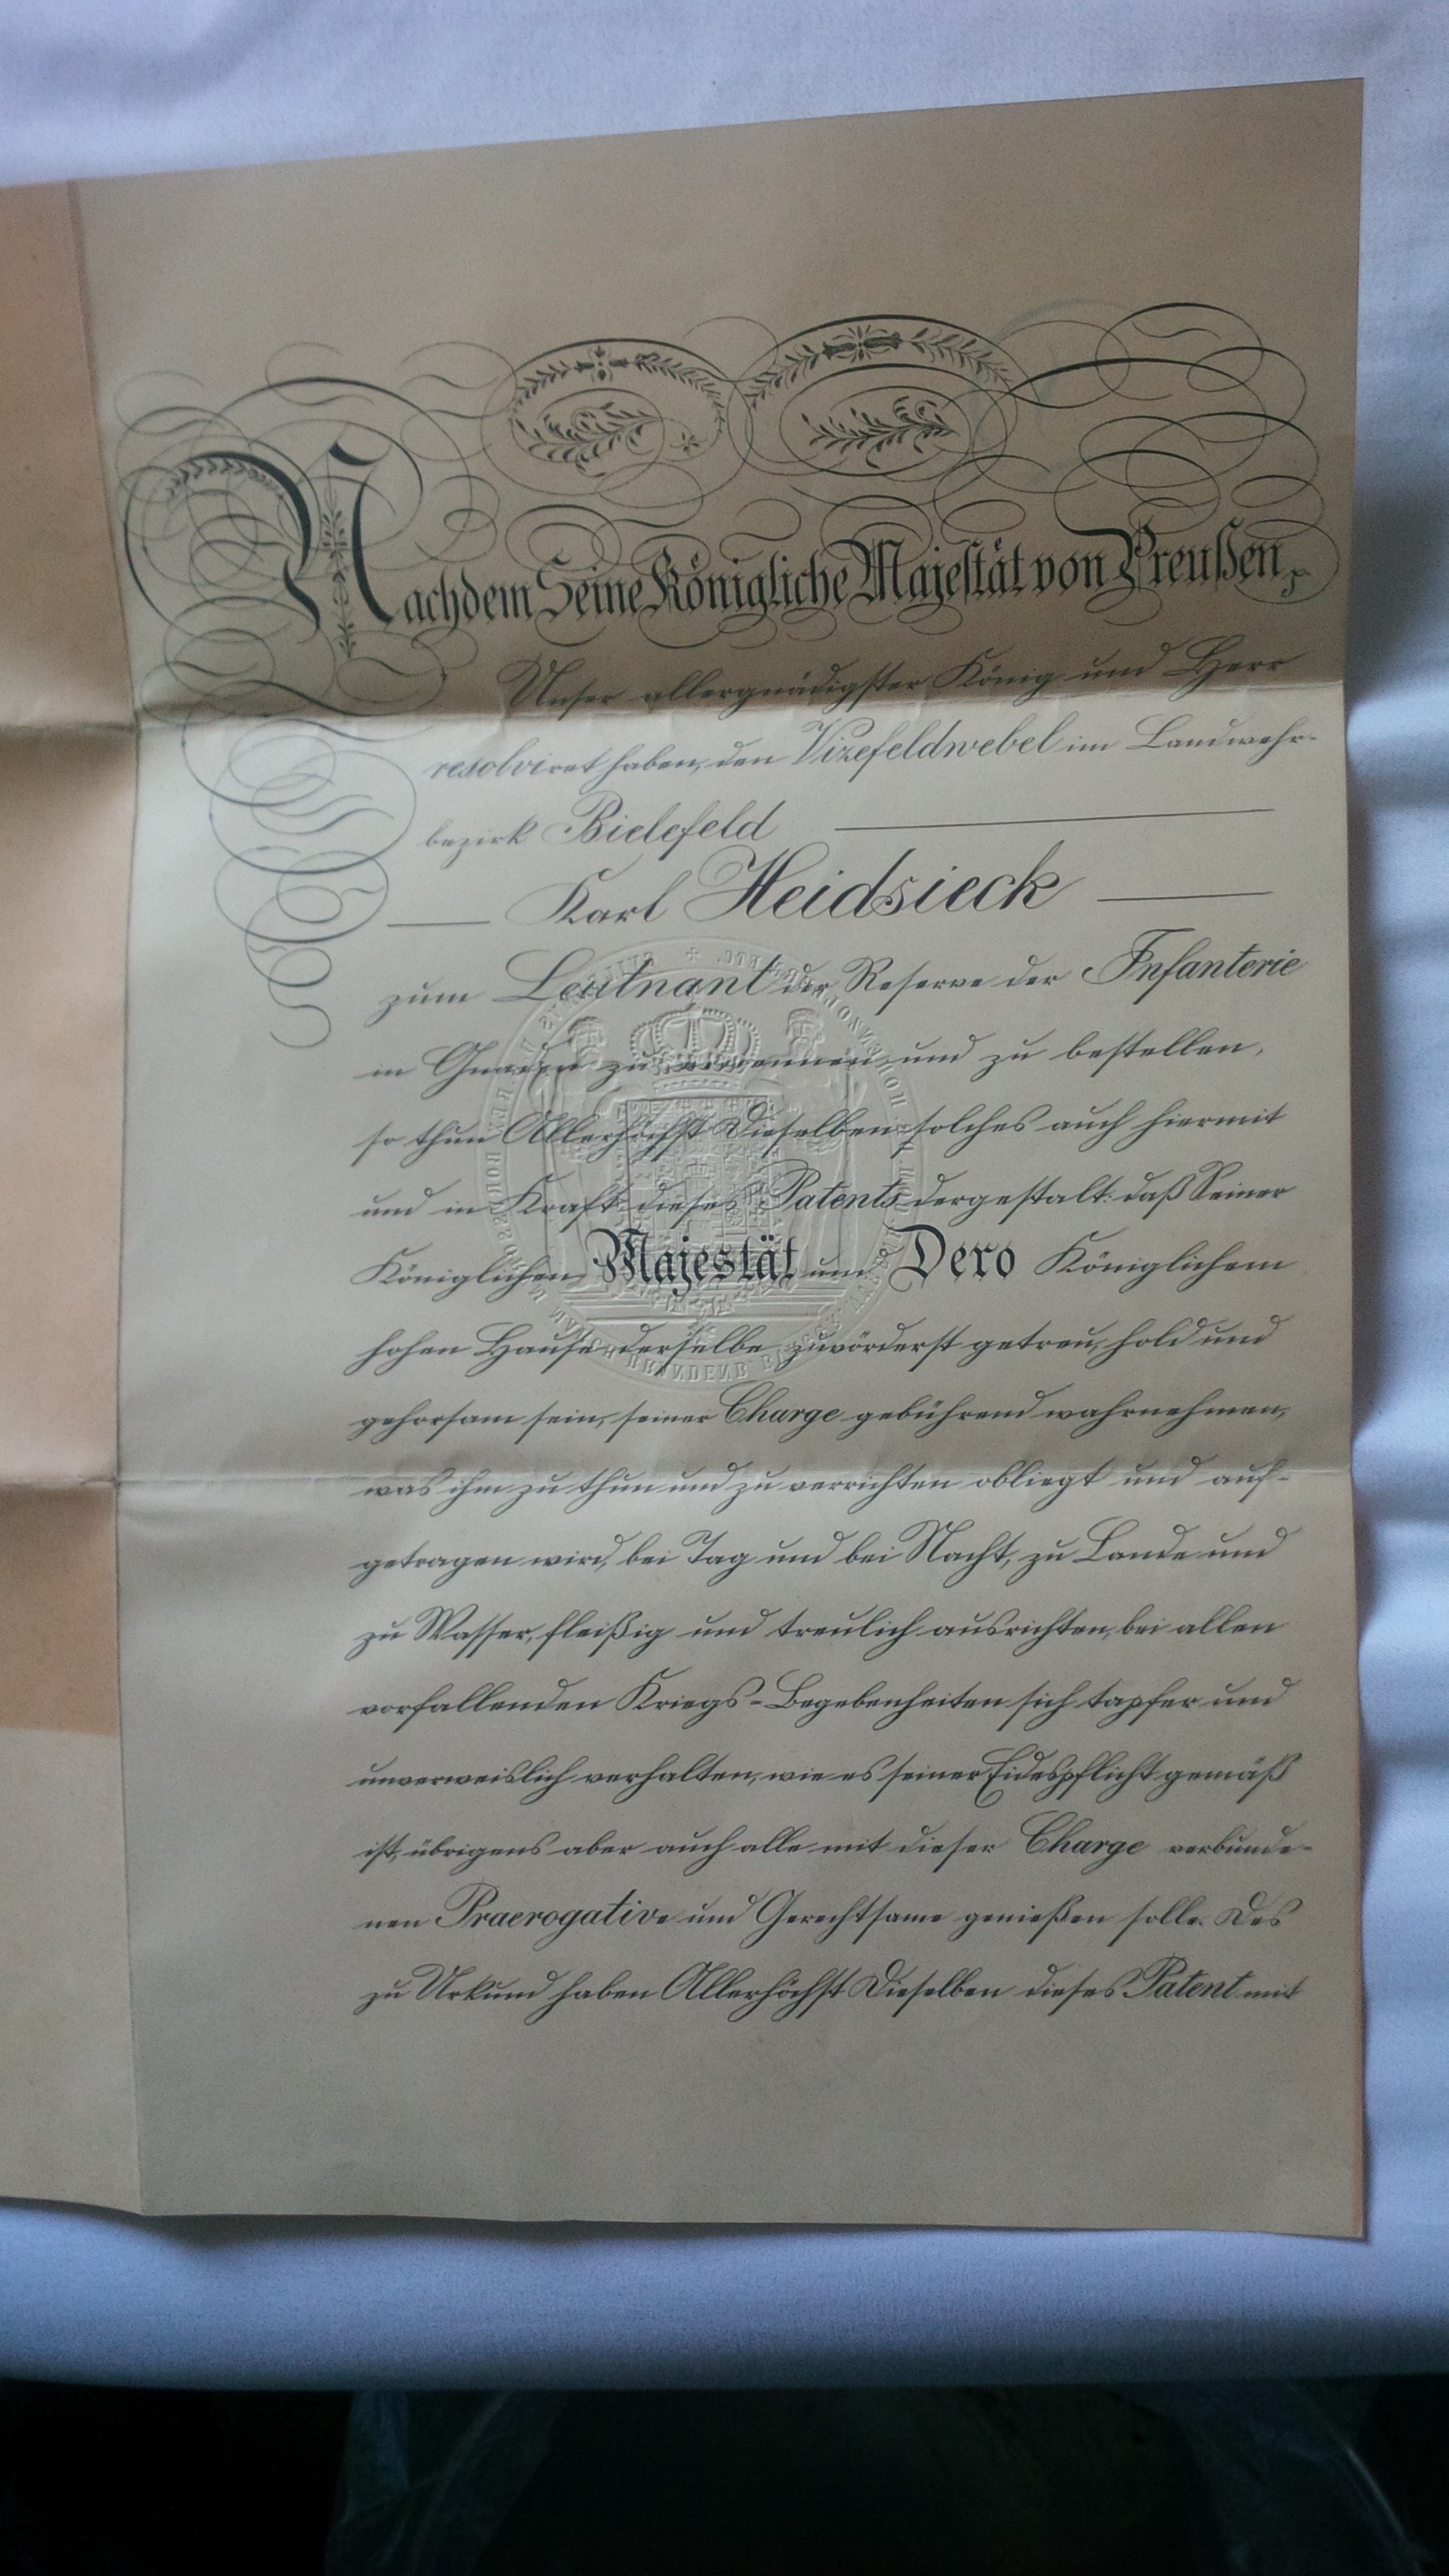 Nachdem Seine Königliche Majestät von Preußen,
Unser allergnädigster König und Herr
resolviret haben, den Vizefeldwebel im Landwehr-
bezirk Bielefeld
Karl Heidsieck
zum Leutnant der Reserve der Infanterie
in Gnaden zu ernennen und zu bestellen,
so thun Allerhöchst Dieselben solches auch hiermit
und in Kraft dieses Patents dergestalt: daß Seiner
Königlichen Majestät und Dero Königlichem
hohen Hause derselbe zuvörderst getreu, hold und
gehorsam sein, seiner Charge gebührend wahrnehmen,
was ihm zu thun und zu verrichten obliegt und auf-
getragen wird, bei Tag und bei Nacht, zu Lande und
zu Wasser, fleißig und treulich ausrichten, bei allen
vorfallenden Kriegs-Begebenheiten sich tapfer und
unverweislich verhalten, wie es seiner Eidespflicht gemäß
ist, übrigens aber auch alle mit dieser Charge verbunde-
nen Praerogative und Gerechtsame genießen solle. Des
zu Urkund haben Allerhöchst Dieselben dieses Patent mit